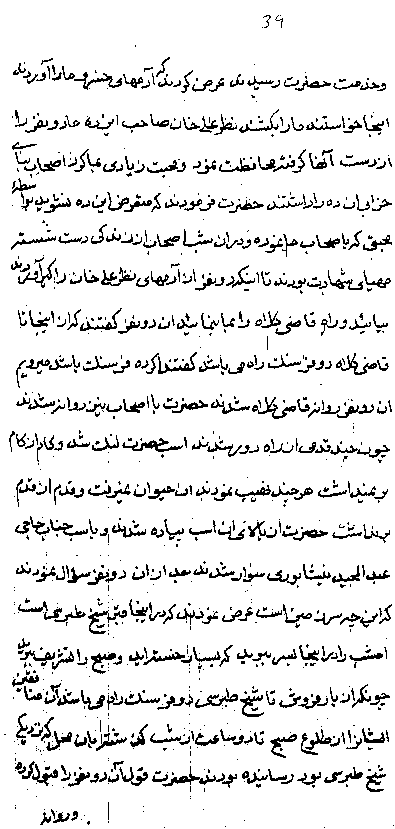 39
وخدمت حضرت رسیدند عرض کردند که آدمهای خسرو مارا آوردند
اینجا خواستند مارا بکشند نظر علی خان صاحب این ده مادو نفر را
از دست آنها گرفته محافظت نمود و محبت زیادی میاکرد اصحاب بنای
خرابی آن ده را داشتند حضرت فرمودند که متعرض این ده نشوید بواسطهٔ
محبتی که با اصحاب ما نموده و در آن شب اصحاب از زندگی دست شسته
مهیای شهادت بودند تا اینکه دو نفر از آدمهای نظر علی خان را گیر آوردند
بیائید و راه قاضی کلاه را بما بنمائید آن دو نفر گفتند که از اینجا تا
قاضی کلاه دو فرسنک راه می باشد گفتند اگر ده فرسنک باشد میرویم
آن دو نفر روانه قاضی کلاه شدند حضرت با اصحاب نیز روانه شدند
چون چند قدمی از راه دور شدند اسب حضرت لنک شد و گام از گام
بر نمیداشت هر چند نهیب نمودند آن حیوان نمیرفت و قدم از قدم
بر نداشت حضرت از بالای آن اسب پیاده شدند و باسب جناب حاجی
عبد المجید نیشابوری سوار شدند بعد از آن دو نفر سؤال نمودند
که این چه سر زمین است عرض نمودند که در اینجا شیخ طبرسی است
امشب را در اینجا بسر ببرید که بسیار خسته اید و صبح را تشریف ببرید
چونکه از بار فروش تا شیخ طبرسی دو فرسنک راه می باشد آن
ایشان را از طلوع صبح تا دو ساعت از شب گذشته بآن محل که نزدیکی
شیخ طبرسی بود رسانیده بودند حضرت قول آن دو نفر را قبول کرده
و روانه